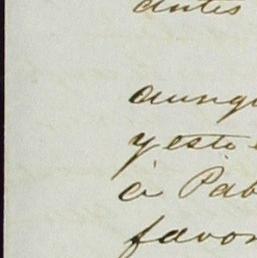 antes
aunqu
y esto
á Pab
favor